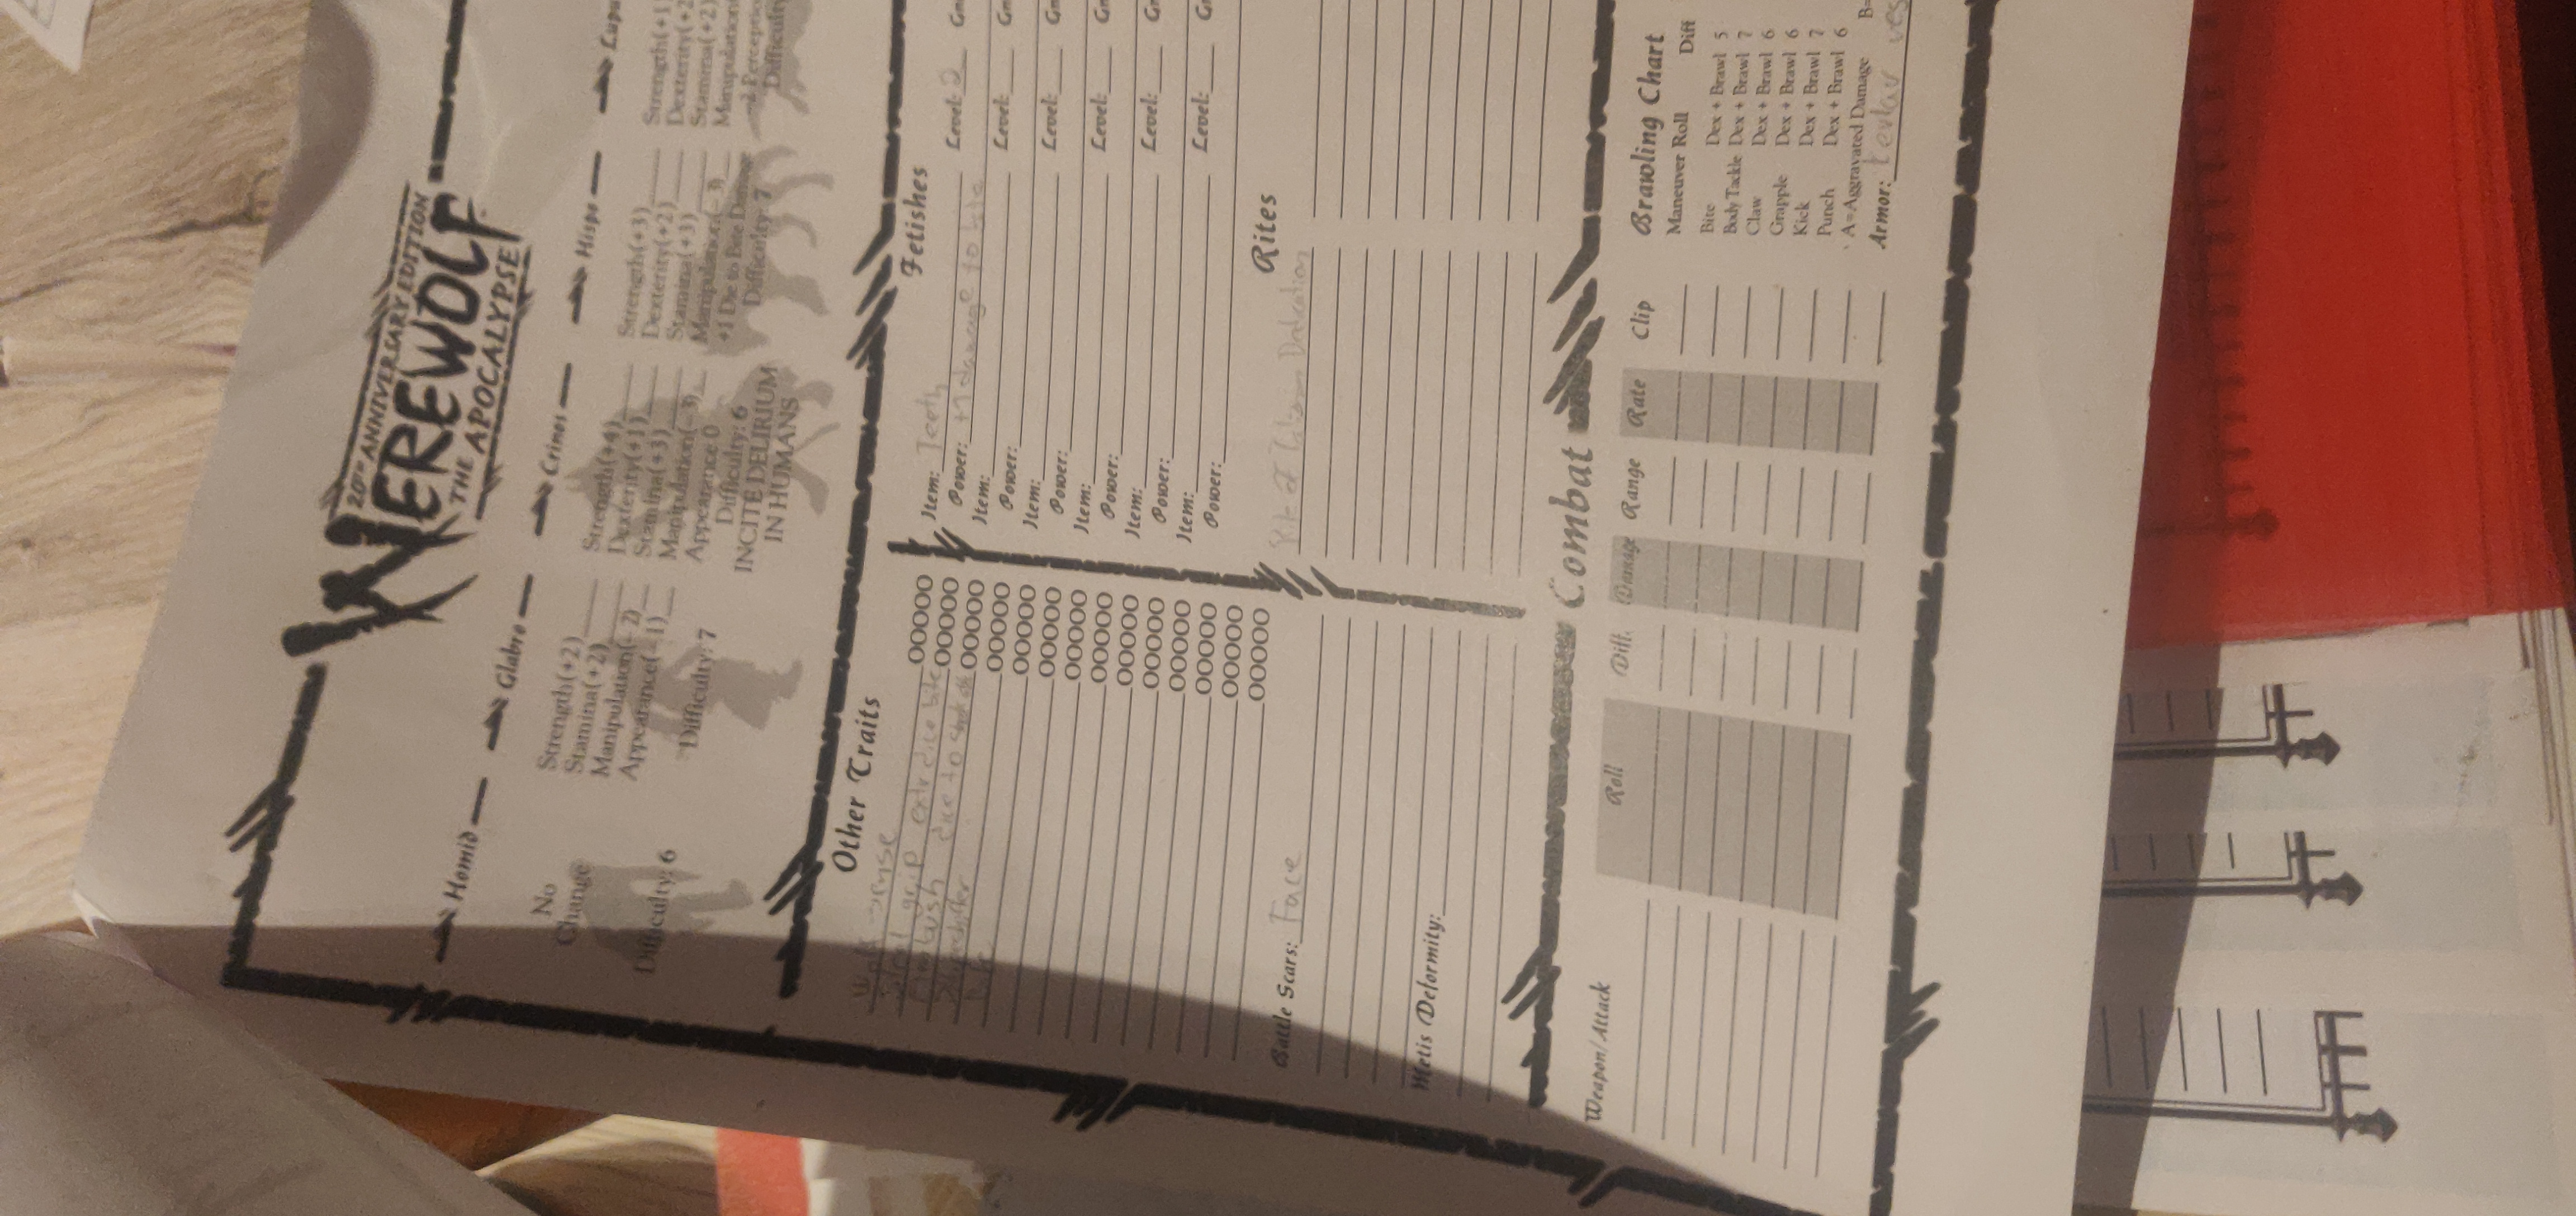 20TH ANNIVERSARY EDITION
WEREWOLF
THE APOCALYPSE
Homid
No
Change
Difficulty: 6
Glabro
Strength(+2)
Stamina(+2)
Manipulation(-2)
Appearance(-1)
Difficulty: 7
Crinos
Strength(+4)
Dexterity(+1)
Stamina(+3)
Manipulation(-3)
Appearance 0
Difficulty: 6
INCITE DELIRIUM
IN HUMANS
Hispo
Strength(+3)
Dexterity(+2)
Stamina(+3)
Manipulation(-3)
+1 Die to Bite Damage
Difficulty: 7
Lupu
Strength(+1
Dexterity(+2
Stamina(+2)
Manipulation
-2 Perceptio
Difficulty
Other Traits
sense OOOOO
grip extr dice bite OOOOO
Ambush dice to OOOOO
Shapeshifter OOOOO
OOOOO
OOOOO
OOOOO
OOOOO
OOOOO
OOOOO
OOOOO
OOOOO
OOOOO
OOOOO
Battle Scars: Face
Metis Deformity:
Fetishes
Item: Teeth Level: 2 Gn
Power: +1 damage to bite
Item: Level: Gn
Power:
Item: Level: Gn
Power:
Item: Level: Gn
Power:
Item: Level: Gn
Power:
Item: Level: Gn
Power:
Rites
Rite of Talisman Dedication
Combat
Weapon/Attack Roll Diff. Damage Range Rate Clip
Brawling Chart
Maneuver Roll Diff
Bite Dex + Brawl 5
Body Tackle Dex + Brawl 7
Claw Dex + Brawl 6
Grapple Dex + Brawl 6
Kick Dex + Brawl 7
Punch Dex + Brawl 6
A=Aggravated Damage B=
Armor: kevlar ves